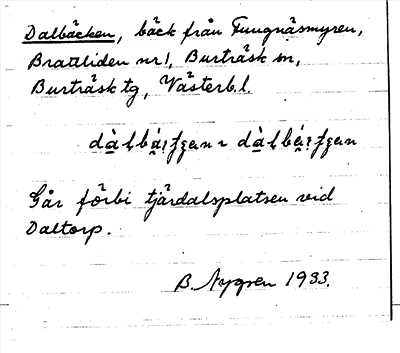 Dalbäcken, bäck från Tungnäsmyren,
Brattliden nr 1, Burträsk sn,
Burträsk tg, Västerb. l.
Går förbi tjärdalsplatsen vid
Daltorp.
B. Nygren 1933.